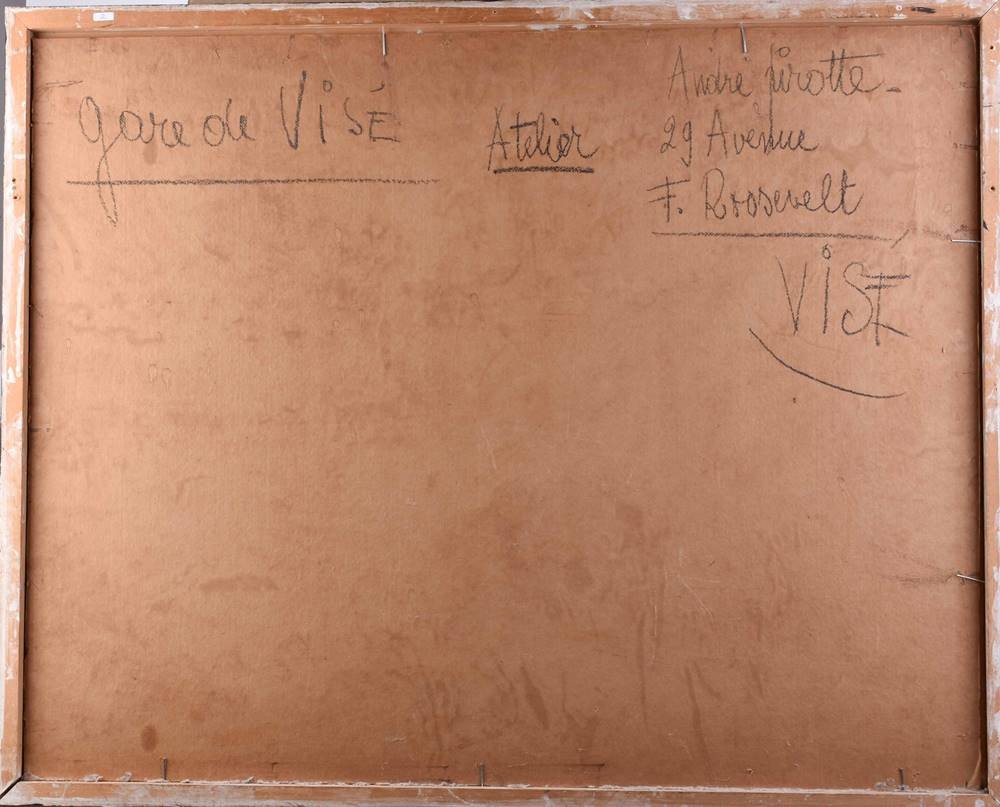 gare de VISÉ
Atelier
André pirotte -
29 Avenue
F. Roosevelt
VISÉ